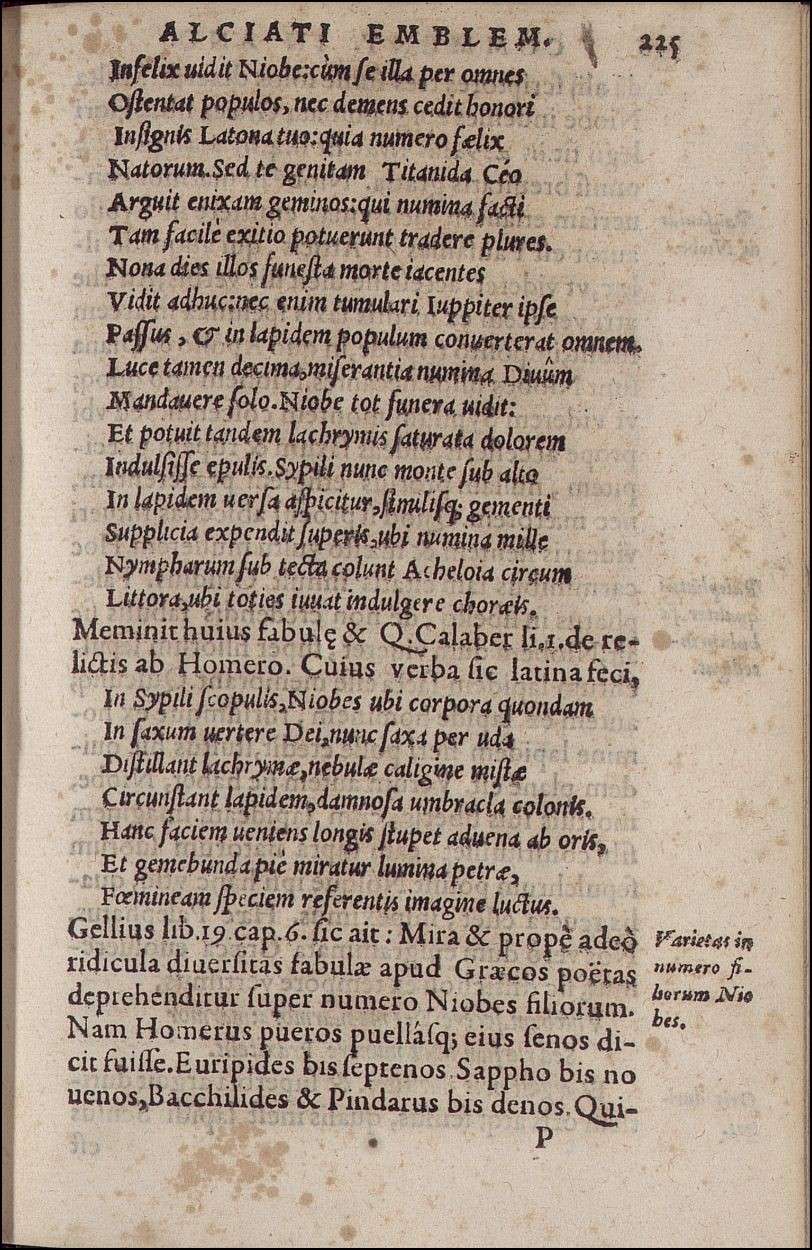 ALCIATI EMBLEM. 225
Infelix uidit Niobe:cùm se illa per omnes
Ostentat populos, nec demens cedit honori
Insignis Latona tuo:quia numero fœlix
Natorum.Sed te genitam Titanida Céo
Arguit enixam geminos:qui numina facti
Tam facilè exitio potuerunt tradere plures.
Nona dies illos funesta morte iacentes
Vidit adhuc:nec enim tumulari Iuppiter ipse
Passus, & in lapidem populum conuerterat omnem.
Luce tamen decima,miserantia numina Diuûm
Mandauere solo.Niobe tot funera uidit:
Et potuit tandem lachrymis saturata dolorem
Indulsisse epulis.Sypili nunc monte sub alto
In lapidem uersa aspicitur,similisq; gementi
Supplicia expendit superis,ubi numina mille
Nympharum sub tecta colunt Acheloia circum
Littora,ubi toties iuuat indulgere choræis.
Meminit huius fabulę & Q.Calaber li.1.de re-
lictis ab Homero. Cuius verba sic latina feci,
In Sypili scopulis,Niobes ubi corpora quondam
In saxum uertere Dei,nunc saxa per uda
Distillant lachrymæ,nebulæ caligine mistæ
Circunstant lapidem,damnosa umbracla colonis.
Hanc faciem ueniens longis stupet aduena ab oris,
Et gemebunda piè miratur lumina petræ,
Fœmineam speciem referentis imagine luctus.
Gellius lib.19 cap.6. sic ait: Mira & propè adeò
ridicula diuersitas fabulæ apud Græcos poëtas
deprehenditur super numero Niobes filiorum.
Nam Homerus pueros puellásq; eius senos di-
cit fuisse.Euripides bis septenos Sappho bis no
uenos,Bacchilides & Pindarus bis denos. Qui-
Varietas in
numero fi-
liorum Nio
bes.
P